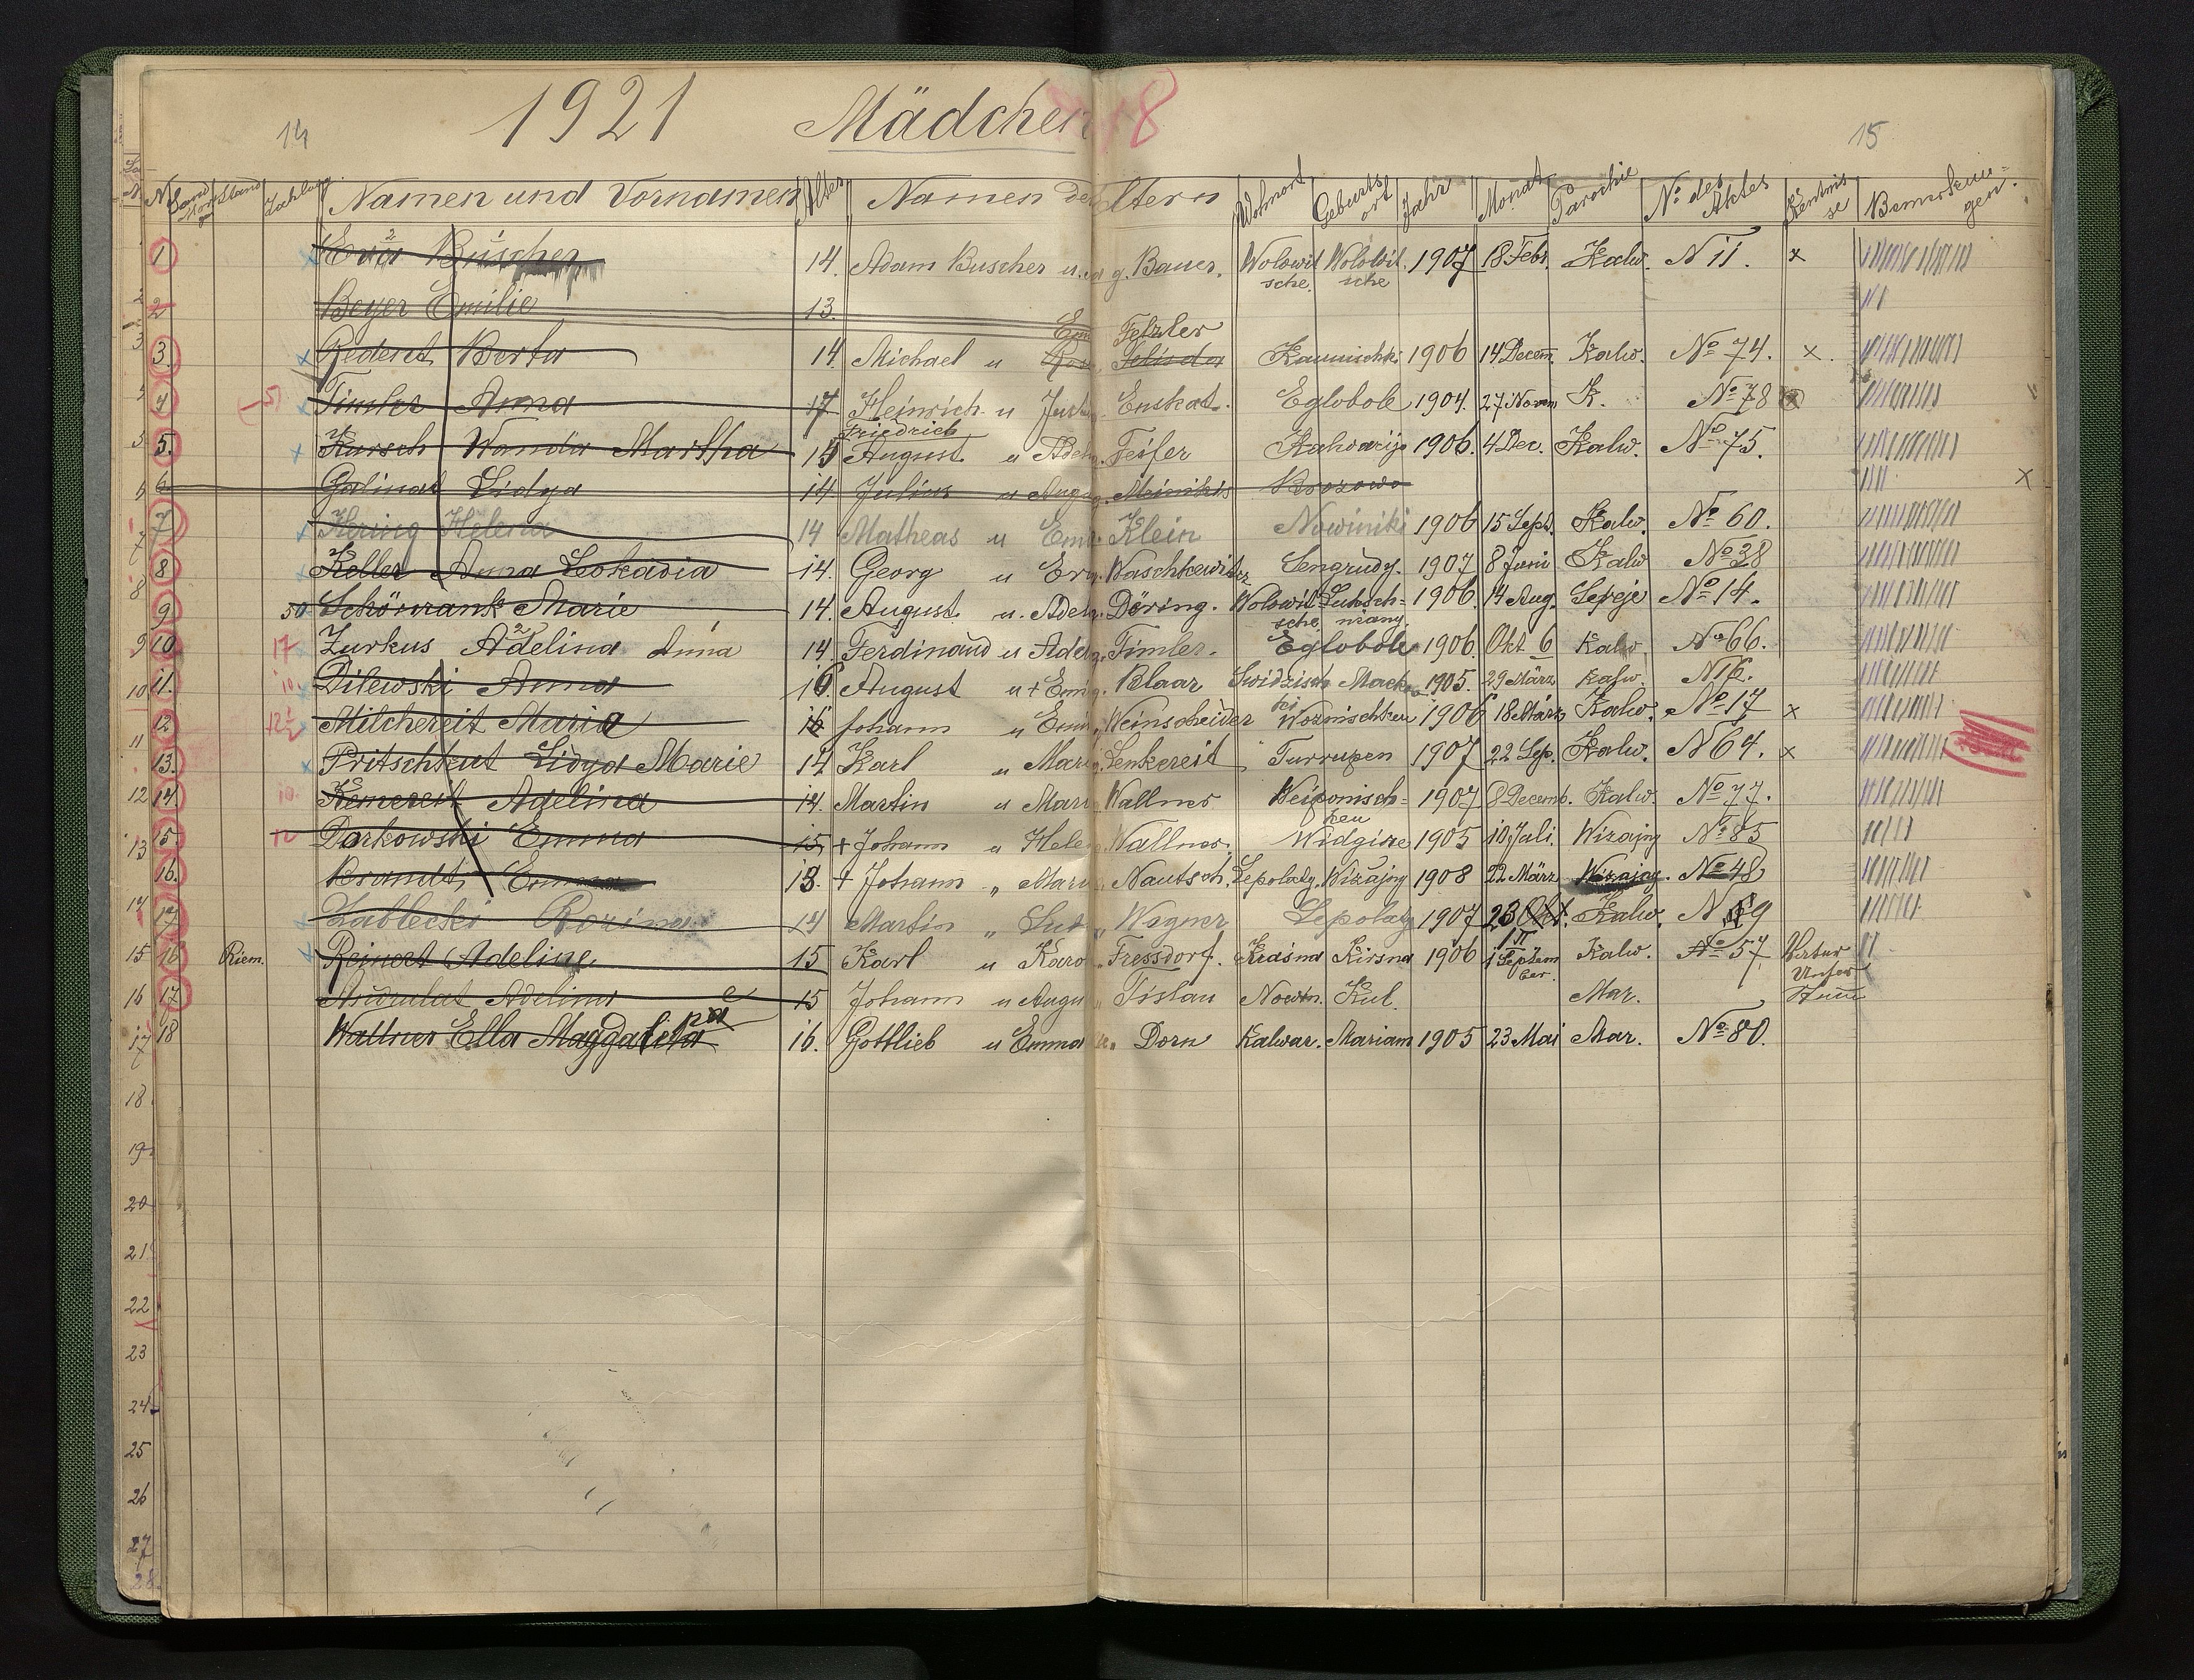 14 1921 Mädchen 18 15
N Land Morgen Stand Zahlung Namen und Vornamen Alter Namen der Eltern Wohnort Geburtsort Jahr Monat Parochie No des Aktes Kentnisse Bemerkungen.
1 Eva 2 Buscher 1 14. Adam Buscher u. g. Bauer. Wolowitsche. Wolowitsche 1907 18 Febr. Kalw. N 11. x
2 Beyer Emilie 13.
3. Redent Berta 14. Michael u Em Felzler 1906 14 Decem. Kalw. No 74. x.
4 Timler Anna 17 Heinrich u Enskat. Eglobole 1904. 27 Novem K. No 78 x
5. Kursch Wanda Martha 15 Friedrich August u Adel g. Feifer Kalwarija 1906. 4 Dec. Kalw. No 75.
6. Galinat Lidya 14 Julius u Aug g. Brozowo x
7 Hering Helena 14 Matheas u Emi Klein Nowiniki 1906 15 Sept. Kalw. No 60.
8 Keller Anna Leokadia 14. Georg u Er g. Waschkewitz Sengrudy. 1907 8 Juni Kalw No 38
9 50 Schönrank Marie 14. August u. Adel g. Döring. Wolowitsche 1906. 14 Aug. Sereje No 14.
10 17 Zurkus Adelina 2 Anna 1 14. Ferdinand u Adel g. Timler. Eglobole 1906. Okt 6 Kalw. No 66.
11. 10. Dilewski Anna 16 August u + Emi g. Blaar 1905. 29 März Kalw. N 16.
12 12½ Milchereit Maria 16 Johann u Emi Weinscheider Woznischken 1906 18 März Kalw. No 17 x
13. Pritschkut Lidya Marie 14 Karl u Mari g. Lenkereit Turrupen 1907 22 Sep. Kalw. N 64. x
14 10. Kemereit Adelina 14. Martin u Mari Wallner Weiponischken 1907 8 Decemb. Kalw. No 77.
15. 12 Darkowski Emma 15 + Johann u Hele Wallner. Widgire 1905 10 Juli. Wizajny No 85
16. Brandt, Emma 13. + Johann „ Mari Nautsch. Lepolaty. Wizajny 1908 22 März Wizajny. No 48
17 Zablecki Rozina 14 Martin „ Lut „ Wegner Lepolaty 1907 23 Okt. Kalw. N 9
16 Riem. Reinert Adeline 15 Karl u Karo „ Fressdorf. Krasna Kirsna 1906 1 September Kalw. No 57
17 Andrulat Adelina e 15 Johann u Augu „ Tislau Nowin. Kul. Mar.
18 Wallner Ella Magdalena 16. Gottlieb u Emma „ Dorn Kalwar. Mariam 1905 23 Mai Mar. No 80.
18
19
20
21
22
23
24
25
26
27
28